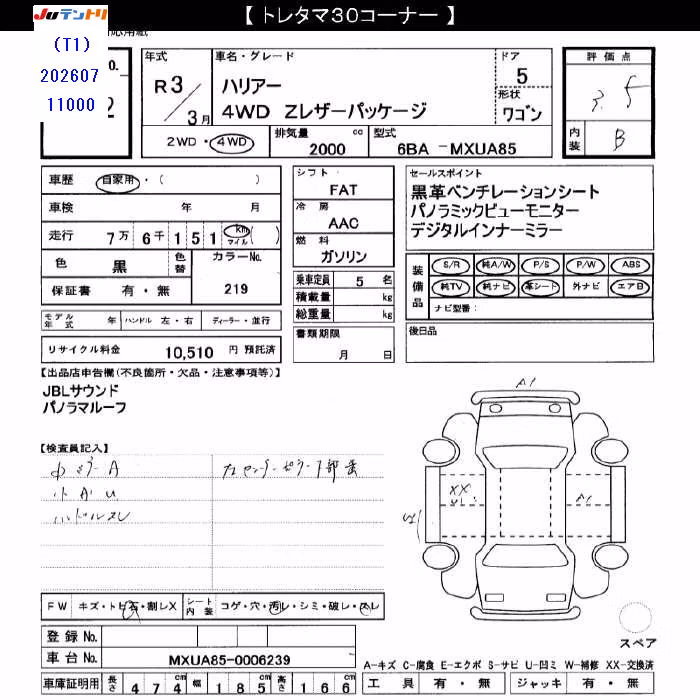 【 トレタマ30コーナー 】
JUテントリ
(T1)
202607
11000
応用紙
No.
2
年式
R3/3月
車名・グレード
ハリアー
4WD Zレザーパッケージ
ドア
5
形状
ワゴン
2WD・4WD
排気量 2000 cc
型式 6BA-MXUA85
評価点
3.5
内装 B
車歴 自家用・( )
車検 年 月
走行 7万 6千 1 5 1 km マイル ( )
色 黒 色替 カラーNo. 219
保証書 有・無
モデル年式 年 ハンドル 左・右 ディーラー・並行
リサイクル料金 10,510 円 預託済
シフト
FAT
冷房
AAC
燃料
ガソリン
乗車定員 5 名
積載量 kg
総重量 kg
書類期限
月 日
セールスポイント
黒革ベンチレーションシート
パノラミックビューモニター
デジタルインナーミラー
装備品
S/R 純A/W P/S P/W ABS
純TV 純ナビ 革シート 外ナビ エアB
ナビ型番:
後日品
【出品店申告欄(不良箇所・欠品・注意事項等)】
JBLサウンド
パノラマルーフ
【検査員記入】
A1
XX
U1
A1
FW キズ・トビ石・割レX シート内装 コゲ・穴・汚レ・シミ・破レ・スレ
登録 No.
車台 No. MXUA85-0006239
車庫証明用 長さ 474 cm 幅 185 cm 高さ 166 cm
スペア
A-キズ C-腐食 E-エクボ S-サビ U-凹ミ W-補修 XX-交換済
工具 有・無 ジャッキ 有・無